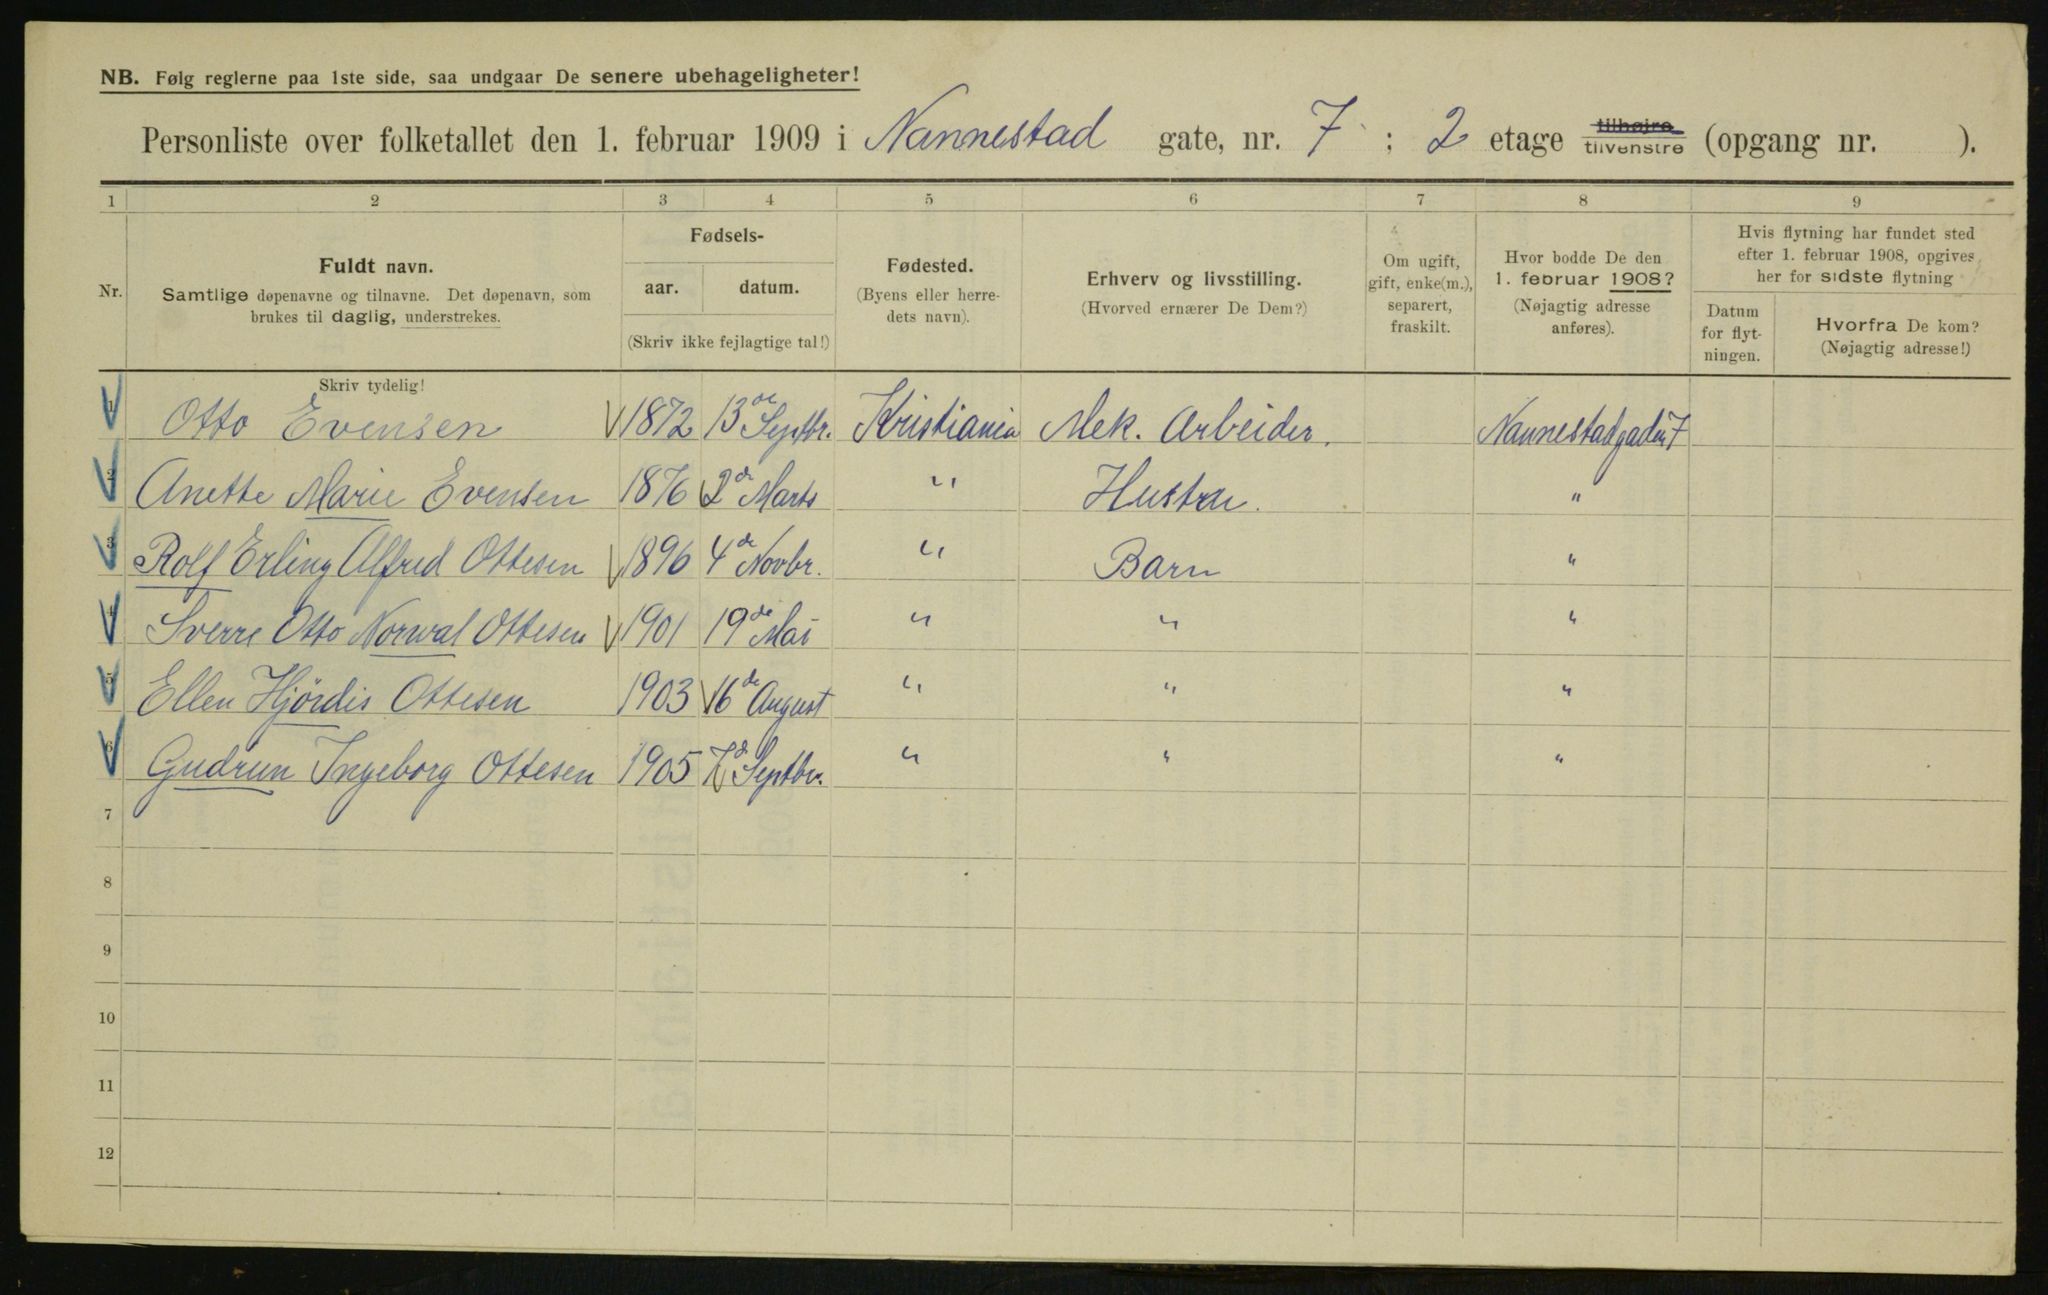 NB. Følg reglerne paa 1ste side, saa undgaar De senere ubehageligheter!
Personliste over folketallet den 1. februar 1909 i Nannestad gate, nr. 7 ; 2 etage tilhøjre tilvenstre (opgang nr. ).
1 2 3 4 5 6 7 8 9
Nr.
Fuldt navn.
Samtlige døpenavne og tilnavne. Det døpenavn, som
brukes til daglig, understrekes.
Skriv tydelig!
Fødsels-
aar. datum.
(Skriv ikke fejlagtige tal!)
Fødested.
(Byens eller herre-
dets navn).
Erhverv og livsstilling.
(Hvorved ernærer De Dem?)
Om ugift,
gift, enke(m.),
separert,
fraskilt.
Hvor bodde De den
1. februar 1908?
(Nøjagtig adresse
anføres).
Hvis flytning har fundet sted
efter 1. februar 1908, opgives
her for sidste flytning
Datum
for flyt-
ningen.
Hvorfra De kom?
(Nøjagtig adresse!)
1 Otto Evensen 1872 13de Septbr. Kristiania Mek. Arbeider. Nannestadgaden 7
2 Anette Marie Evensen 1876 2de Marts " Hustru. "
3 Rolf Erling Alfred Ottesen 1896 4de Novbr. " Barn "
4 Sverre Otto Norwal Ottesen 1901 19de Mai " " "
5 Ellen Hjördis Ottesen 1903 6de August " " "
6 Gudrun Ingeborg Ottesen 1905 7de Septbr. " " "
7
8
9
10
11
12